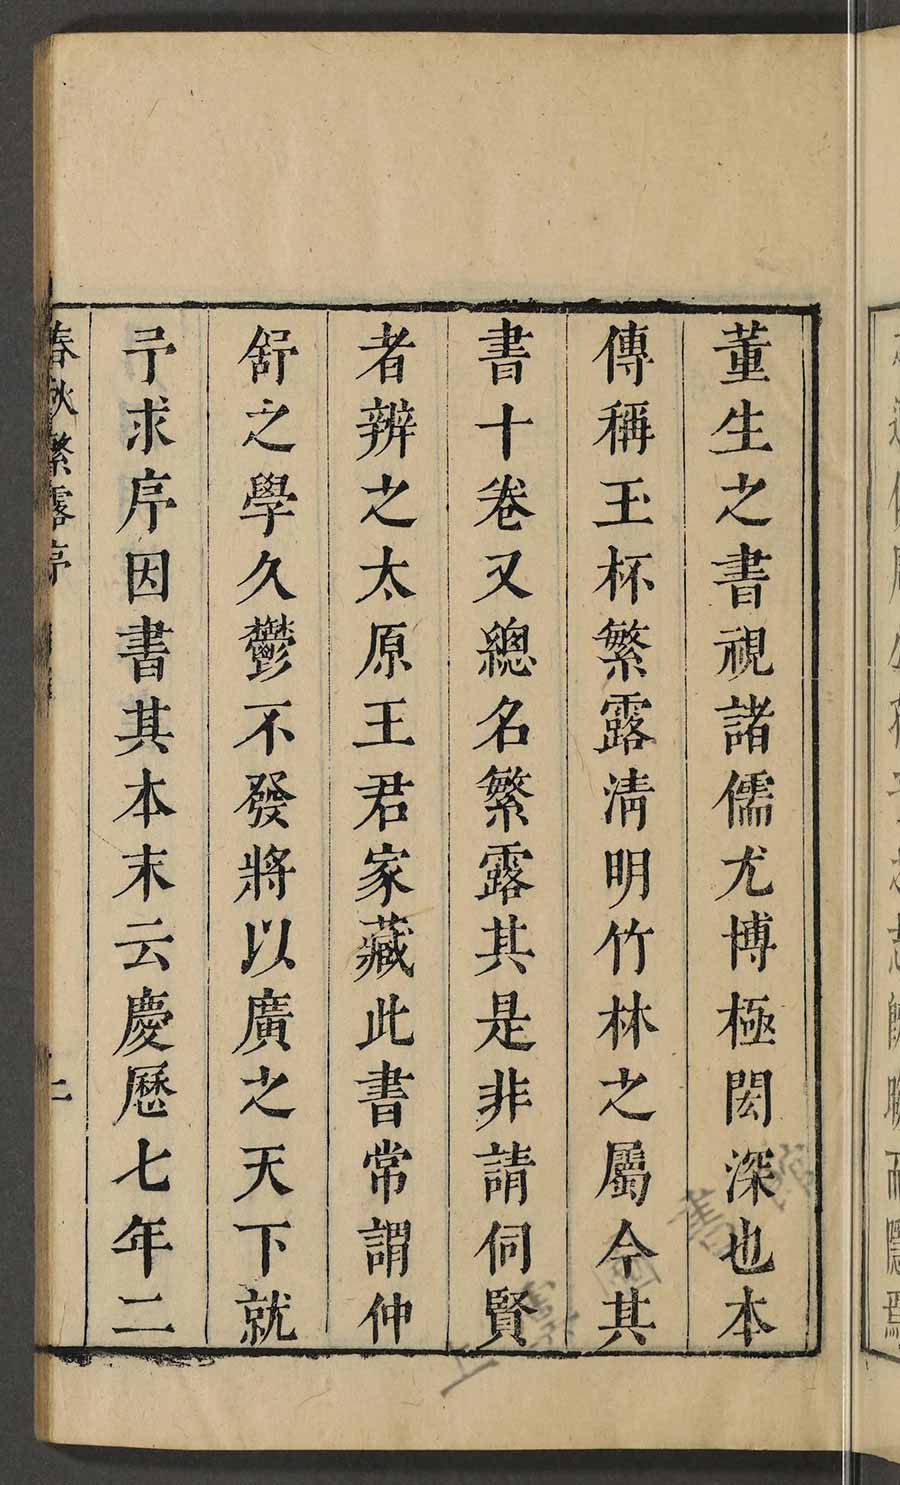 董生之書視諸儒尤博極閎深也本
傳稱玉杯繁露淸明竹林之屬今其
書十卷又總名繁露其是非請伺賢
者辨之太原王君家藏此書常謂仲
舒之學久鬱不發將以廣之天下就
予求序因書其本末云慶曆七年二
春秋繁露序
二